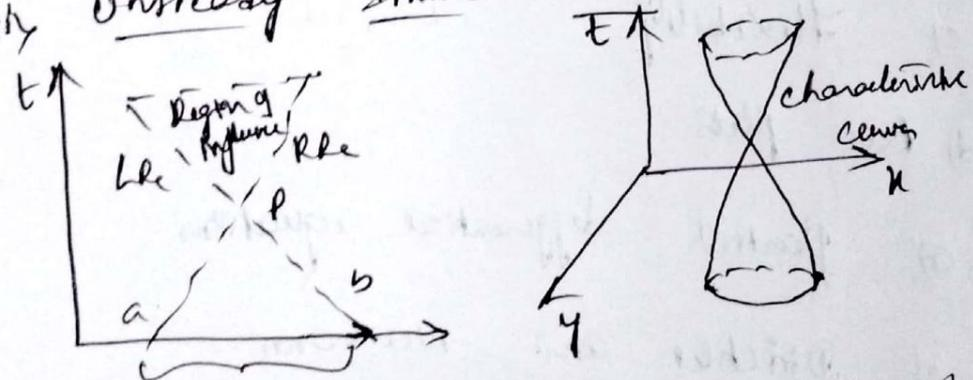 Unsteady
t
Region of
Influence
LRc
RRc
P
a
b
t
characteristic
curves
x
y